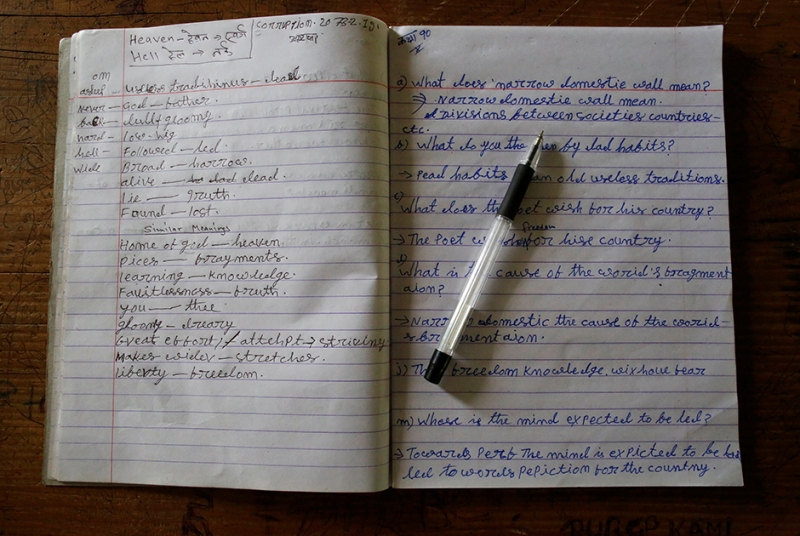 Heaven - हेवन → स्वर्ग
Hell हेल → नर्क
corruption. 20
om
useless tradshinus - dead
Never - God - bather.
dull + gloomy
hard - lose - big
hell - Followed - led.
wide Broad - narrow.
alive - dad dead.
Lie - gruth.
Found - lost.
Similar Meanings
Home of god - heaven.
pices - bragments.
learning - knowledge.
Faustlessmass - bruth.
you - thee.
gloomy - dreary
Great effort, / attehpt → striving
Makes wider - stretches.
liberty - breedom.
कक्षा १०
a) What does narrow domestic wall mean?
⇒ Narrow domestic wall mean.
divisions between societies countries -
etc.
b) What do you the by dad habits?
→ Pead habits old useless traditions.
What does the Poet wish bor his country?
→ The Poet bor hise country.
What is the cause of the world's bragment
aion?
→ domestic the cause of the world-
j) breedom knowledge, wixhoue bear
m) Whose is the mind expected to be led?
→ Towards Perb The mind is expicted to be
led to words pepiction bor the country.